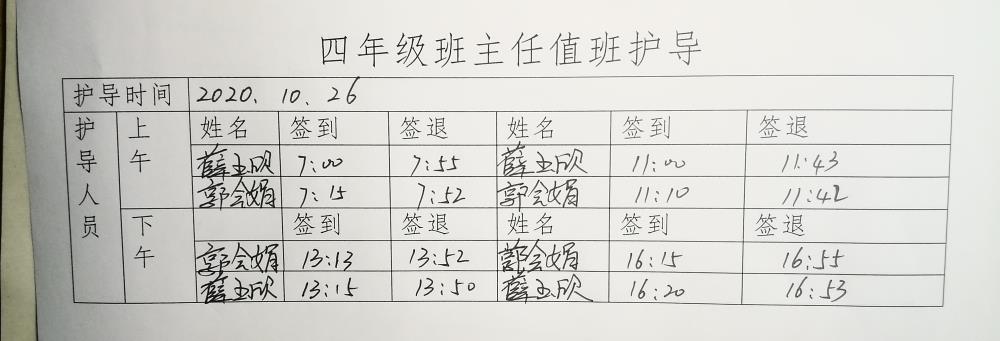 四年级班主任值班护导
护导时间 2020.10.26
护导人员 上午 姓名 签到 签退 姓名 签到 签退
薛玉欣 7:00 7:55 薛玉欣 11:00 11:43
郭会娟 7:15 7:52 郭会娟 11:10 11:42
下午 签到 签退 姓名 签到 签退
郭会娟 13:13 13:52 郭会娟 16:15 16:55
薛玉欣 13:15 13:50 薛玉欣 16:20 16:53